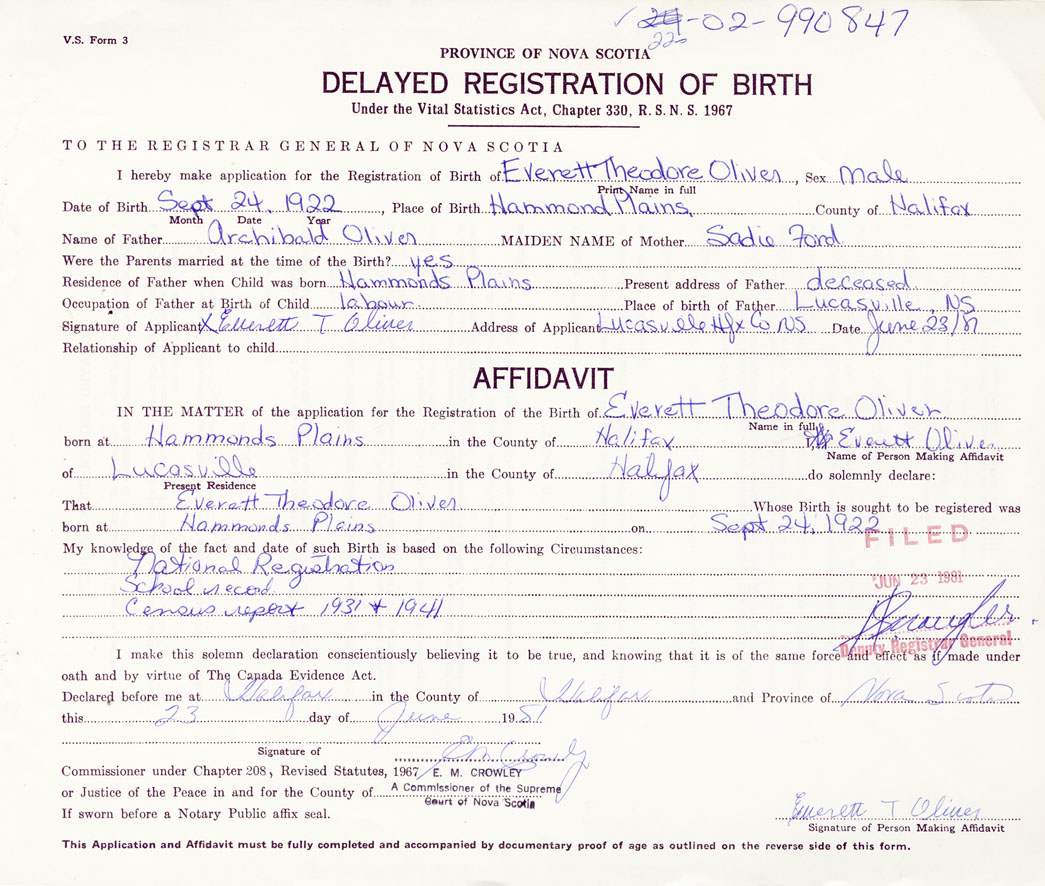 V.S. Form 3
22-02-990847
PROVINCE OF NOVA SCOTIA
DELAYED REGISTRATION OF BIRTH
Under the Vital Statistics Act, Chapter 330, R. S. N. S. 1967
TO THE REGISTRAR GENERAL OF NOVA SCOTIA
I hereby make application for the Registration of Birth of Everett Theodore Oliver, Sex Male
Print Name in full
Date of Birth Sept 24, 1922, Place of Birth Hammond Plains, County of Halifax
Month Date Year
Name of Father Archibald Oliver MAIDEN NAME of Mother Sadie Ford
Were the Parents married at the time of the Birth? yes
Residence of Father when Child was born Hammonds Plains Present address of Father deceased
Occupation of Father at Birth of Child labour Place of birth of Father Lucasville, NS
Signature of Applicant X Everett T Oliver Address of Applicant Lucasville Hfx Co NS Date June 23/81
Relationship of Applicant to child
AFFIDAVIT
IN THE MATTER of the application for the Registration of the Birth of Everett Theodore Oliver
Name in full
born at Hammonds Plains in the County of Halifax I, Everett Oliver
Name of Person Making Affidavit
of Lucasville in the County of Halifax do solemnly declare:
Present Residence
That Everett Theodore Oliver Whose Birth is sought to be registered was
born at Hammonds Plains on Sept 24, 1922
FILED
My knowledge of the fact and date of such Birth is based on the following Circumstances:
National Registration
JUN 23 1981
School record
Census report 1931 + 1941
Deputy Registrar General
I make this solemn declaration conscientiously believing it to be true, and knowing that it is of the same force and effect as if made under
oath and by virtue of The Canada Evidence Act.
Declared before me at Halifax in the County of Halifax and Province of Nova Scotia
this 23 day of June 1981
E M Crowley
Signature of
Commissioner under Chapter 208, Revised Statutes, 1967 E. M. CROWLEY
or Justice of the Peace in and for the County of A Commissioner of the Supreme
Court of Nova Scotia
If sworn before a Notary Public affix seal.
Everett T Oliver
Signature of Person Making Affidavit
This Application and Affidavit must be fully completed and accompanied by documentary proof of age as outlined on the reverse side of this form.